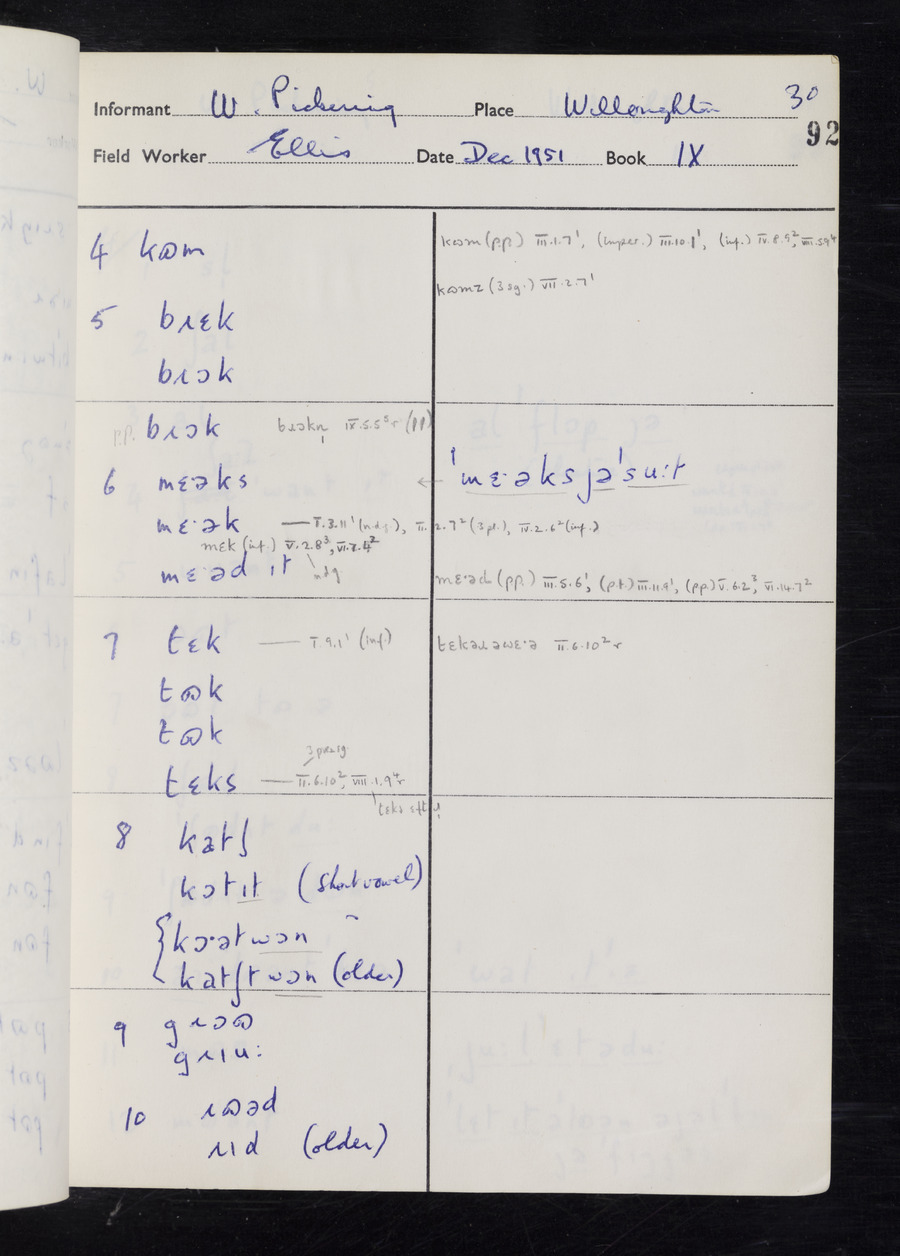 Informant W. Pickering Place Willoughton 30
92
Field Worker Ellis Date Dec 1951 Book IX
4 kɷm
kɷm (p.p.) III.1.7¹, (imper.) III.10.1¹, (inf.) IV.8.9², VIII.5.9⁴
kɷmz (3 sg.) VII.2.7¹
5 bɹɛk
bɹɔk
p.p. bɹɔk bɹɔkn̩ IX.5.5⁵ r (11)
6 mɛ·əks ← ˈmɛ·əks jəˈsu:t
mɛ·ək — I.3.11¹ (ndg), II.2.7² (3 pl.), IV.2.6² (inf.)
mɛk (inf.) V.2.8³, VI.2.4²
ndg
mɛ·əd ɪt
mɛ·əd (pp.) III.5.6¹, (p.t.) III.11.9¹, (pp.) V.6.2³, VI.14.7²
7 tɛk — I.9.1¹ (inf.)
tɛkəɹəwɛ·ə II.6.10² r
tɷk
tɷk
3 pr. sg
tɛks — II.6.10², VIII.1.9⁴ r
8 katʃ
kɔtɪt (short vowel)
kɔ·ətwən
katʃtwən (older)
9 gɹɔɷ
gɹɪu:
10 ɹɷəd
ɹɪd (older)